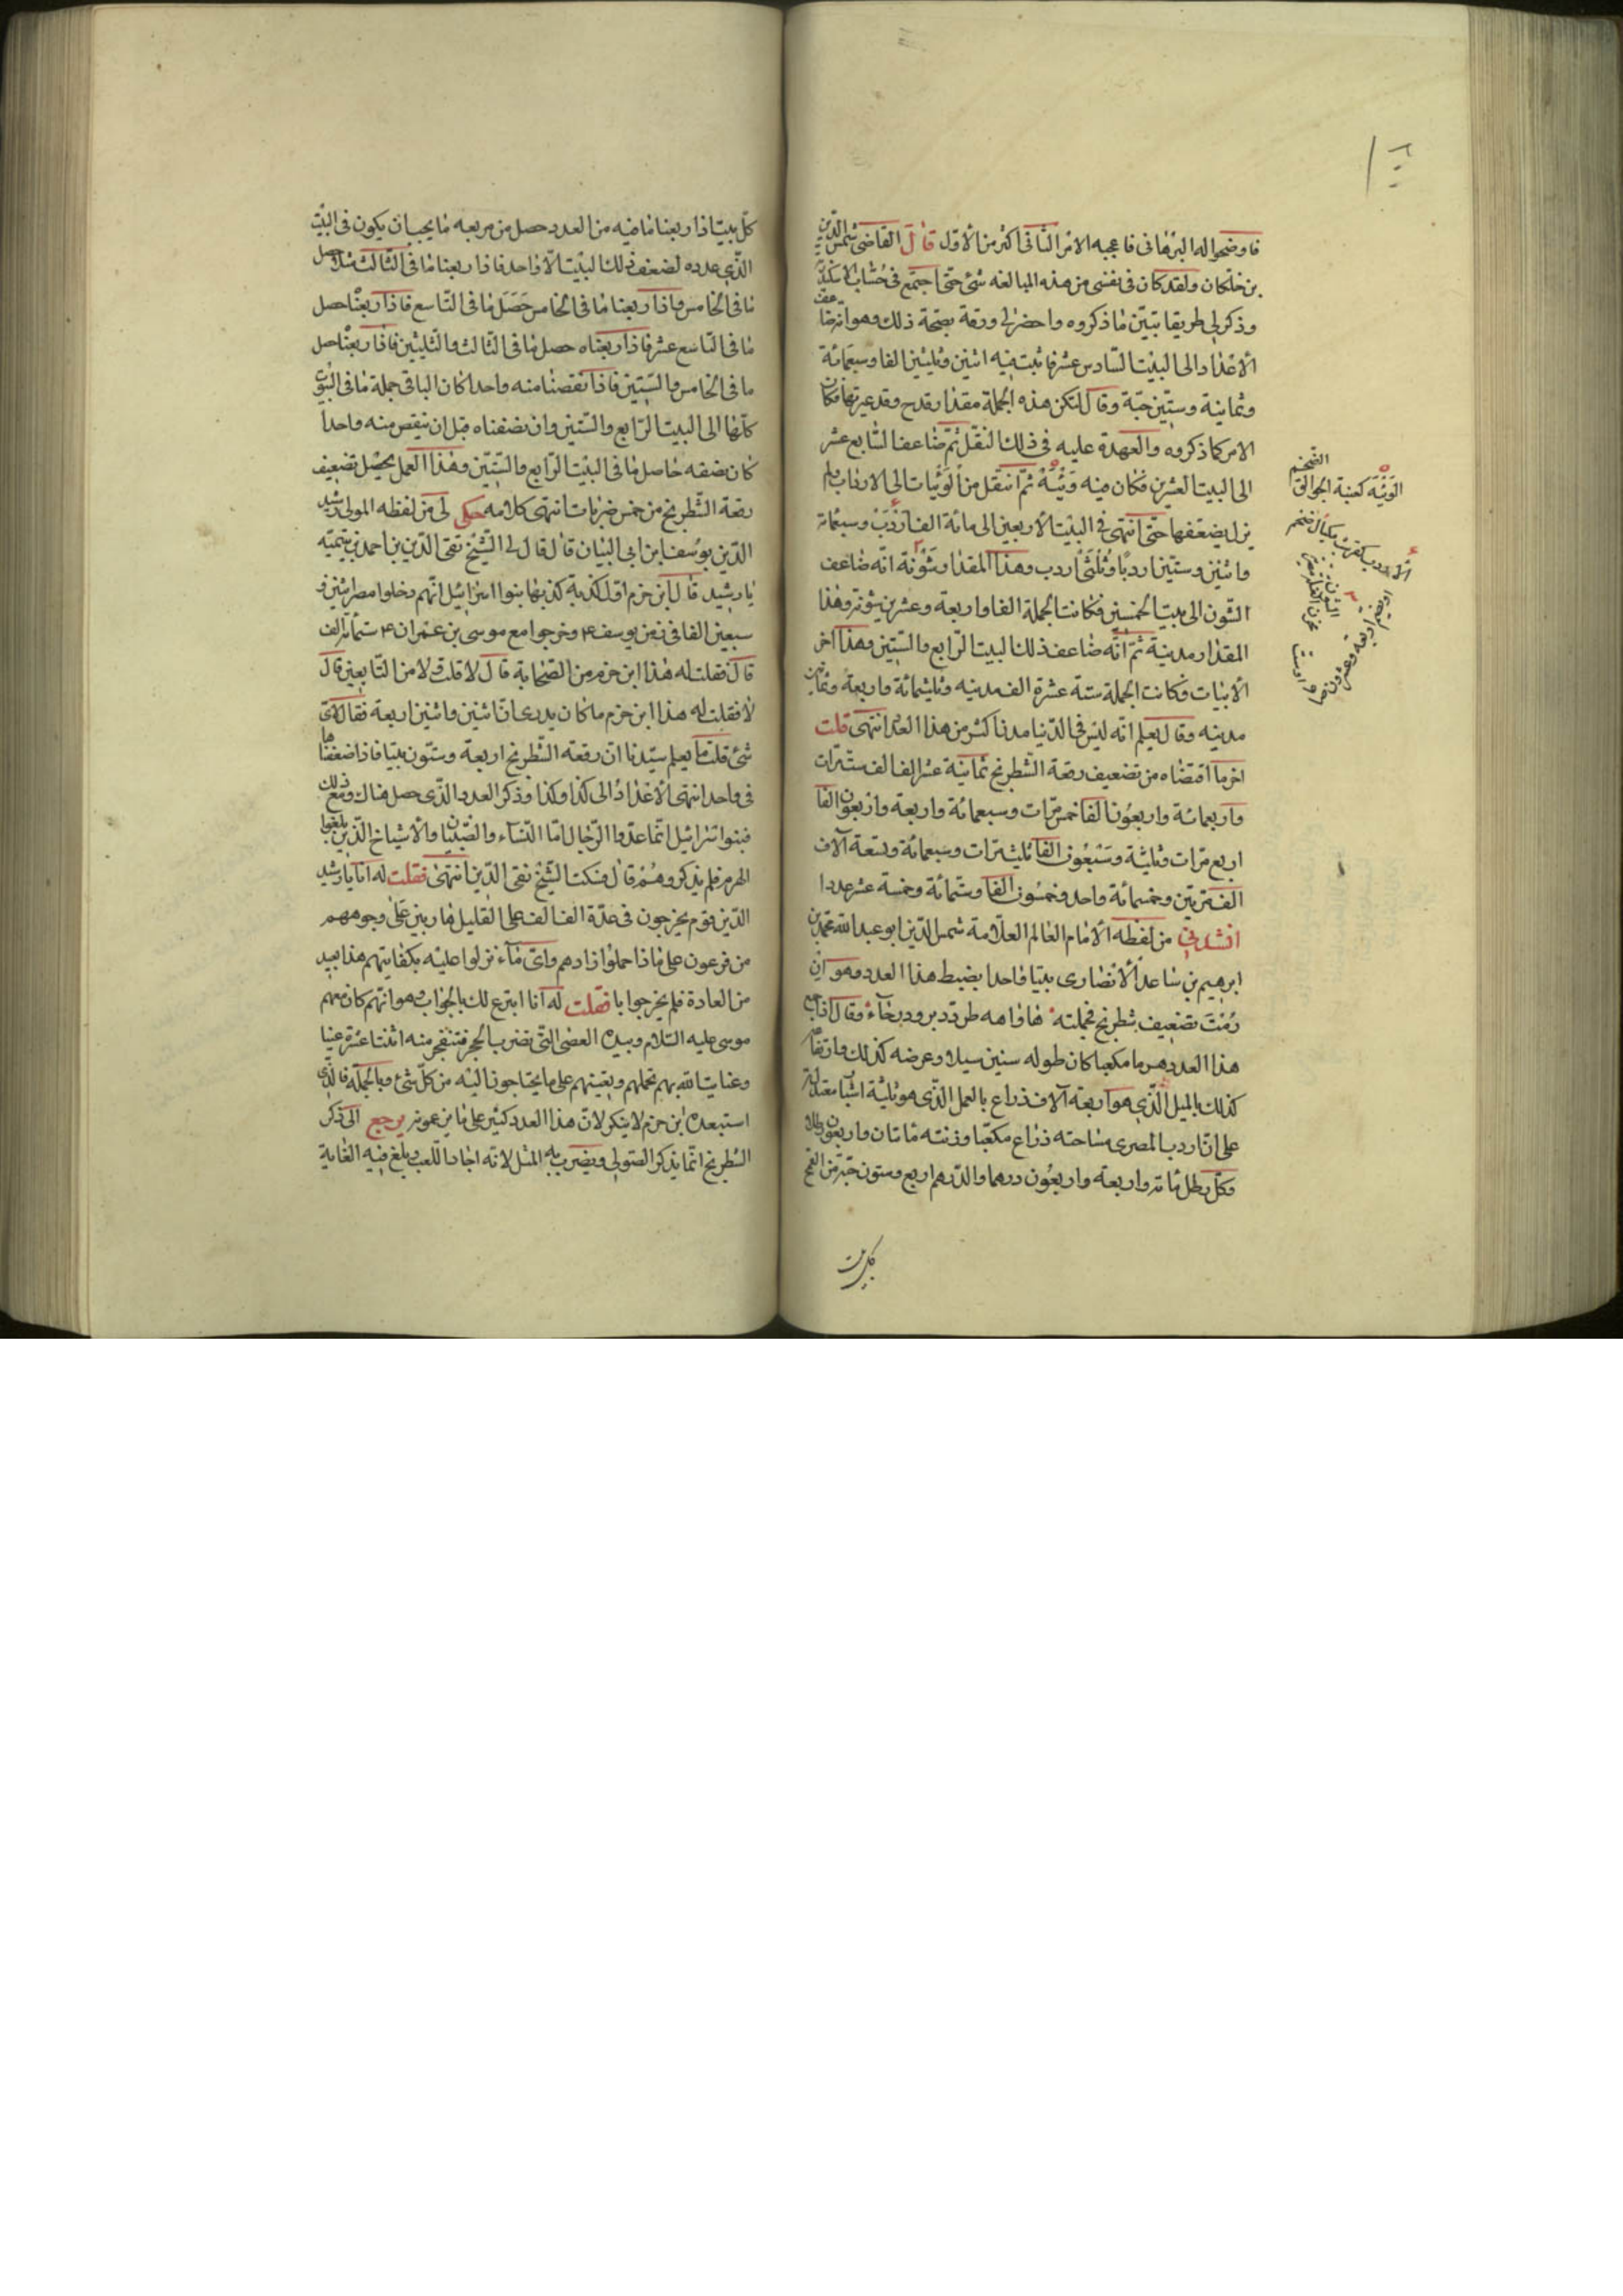 فاوضحوا له البرهانى فاعجبه الامر الثانى اكثر من الاول قال القاضى شمس الدين
بن خلكان ولقد كان فى نفسى من هذه المبالغه شئ حتى اجتمع فى حساب الاسكندرية
وذكر لى طريقا تبين ما ذكروه واحضر لى ورقة بصحة ذلك وهو انه ضاعف
الاعداد الى البيت السادس عشر فاثبت فيه اثنين وثلثين الفا وسبعمائة
وثمانية وستين حبة وقال لتكن هذه الجملة مقدار قدح وقد عبرتها فكان
الامر كما ذكروه والعهدة عليه فى ذلك النقل ثم ضاعف السابع عشر
الى البيت العشرين فكان فيه ويبة ثم انتقل من الويبات الى الارداب ولم
يزل يضعفها حتى انتهى فى البيت الاربعين الى مائة الف اردب وسبعمائة
واثنين وستين اردبا وثلثى اردب وهذا المقدار شونة ثم انه ضاعف
الشون الى بيت الخمسين فكانت الجملة الفا واربعة وعشرين شونة وهذا
المقدار مدينة ثم انه ضاعف ذلك البيت الرابع والستين وهذا اخر
الابيات فكانت الجملة ستة عشرة الف مدينه وثلثمائة واربعة وثمانين
مدينه وقال يعلم انه ليس فى الدنيا مدنا اكثر من هذا العدد انتهى قلت
اخر ما اقتضاه من تضعيف رقعة الشطرنج ثمانية عشر الف الف ست مرات
واربعمائة واربعون الفا خمس مرات وسبعمائة واربعة واربعون الفا
اربع مرات وثلثة وسبعون الفا ثلث مرات وسبعمائة وتسعة آلاف
الف مرتين وخمسمائة واحد وخمسون الفا وستمائة وخمسة عشر عددا
انشدنى من لفظه الامام العالم العلامة شمس الدين ابو عبد الله محمد بن
ابرهيم بن ساعد الانصارى بيتا واحدا يضبط هذا العدد وهو ان
رمت تضعيف شطرنج فجملته ها واهه طزدد زودبخاء وقال اذا جمع
هذا العدد هرما مكعبا كان طوله ستين ميلا وعرضه كذلك وارتفاعه
كذلك بالميل الذى هو اربعة آلاف ذراع بالعمل الذى هو ثلثة اشبار معتدلة
على ان اردب المصرى مساحته ذراع مكعبا وزنته مائتان واربعون رطلا
وكل رطل مائة واربعة واربعون درهما والدرهم اربع وستون حبة من القمح
الويبة كعنبة الجوالق
الضخم
الاردب كقرشب مكيال ضخم
كل بيت
كل بيت اذا ربعنا ما فيه من العدد حصل من مربعه ما يجب ان يكون فى البيت
الذى عدده لضعف ذلك البيت الا واحد فاذا ربعنا ما فى الثالث مثلا حصل
ما فى الخامس واذا ربعنا ما فى الخامس حصل ما فى التاسع فاذا ربعنا حصل
ما فى التاسع عشر فاذا ربعناه حصل ما فى الثالث والثلثين فاذا ربعنا حصل
ما فى الخامس والستين فاذا نقصنا منه واحدا كان الباقى جملة ما فى البيوت
كلها الى البيت الرابع والستين وان نصفناه قبل ان ينقص منه واحدا
كان نصفه حاصل ما فى البيت الرابع والستين وهذا العمل يحصل تضعيف
رقعة الشطرنج من خمس ضربات انتهى كلامه حكى لى من لفظه المولى رشيد
الدين يوسف ابن ابى البيان قال قال لى الشيخ تقى الدين بن احمد بن تيمية
يا رشيد قال ابن حزم اول كذبة كذبها بنوا اسرائيل انهم دخلوا مصر اثنين و
سبعين الفا فى زمن يوسف ع وخرجوا مع موسى بن عمران ع ستمائة الف
قال فقلت له هذا ابن حزم من الصحابة قال لا قلت ولا من التابعين قال
لا فقلت له هذا ابن حزم ما كان يدرى ان اثنين واثنين اربعة فقال لاى
شئ قلت ما يعلم سيدنا ان رقعة الشطرنج اربعة وستون بيتا فاذا ضعفنا
فى واحد انتهى الاعداد الى كذا وكذا وذكر العدد الذى حصل هناك ومع ذلك
فبنوا اسرائيل انما عدوا الرجال اما النساء والصبيان والاشياخ الذين بلغوا
الهرم فلم يذكروهم قال فسكت الشيخ تقى الدين انتهى فقلت له انا يا رشيد
الدين قوم يخرجون فى عدة الف الف على القليل هاربين على وجوههم
من فرعون على ماذا حملوا زادهم واى ماء نزلوا عليه بكفايتهم هذا بعيد
من العادة فلم يخرجوا با فقلت له انا ابترع لك بالجواب وهو انهم كان معهم
موسى عليه السلام وبيده العصى التى تضرب الحجر فتنفجر منه اثنتا عشرة عينا
وعنايت الله بهم تحملهم وبعينهم على ما يحتاجون اليه من كل شئ وبالجملة فالذى
استبعده ابن حزم لا ينكر لان هذا العدد كثير على ما يزعمونه يرجع الى ذكر
الشطرنج انما يذكر الصولى ويضرب به المثل لانه اجاد اللعب وبلغ فيه الغاية